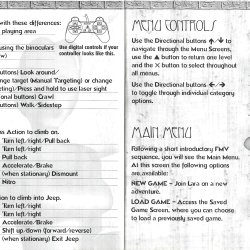 with these differences:
playing area
using the binoculars
w)
Use digital controls if your
controller looks like this.
buttons) Look around/
ange target (Manual Targeting) or change
geting)/Press and hold to use laser sight
ional buttons) Crawl
buttons) Walk/Sidestep
ss Action to climb on.
Turn left/right/Pull back
Turn left/right
Pull back
Accelerate/Brake
(when stationary) Dismount
Nitro
ction to climb into Jeep.
Turn left/right
Turn left/right
Accelerate/Brake
Shift up/down (forward/reverse)
(when stationary) Exit Jeep
MENU CONTROLS
Use the Directional buttons ↑/↓ to
navigate through the Menu Screens,
use the ▲ button to return one level
and the ✕ button to select throughout
all menus.
Use the Directional buttons ←/→
to toggle through individual category
options.
MAIN MENU
Following a short introductory FMV
sequence, you will see the Main Menu.
At this screen the following options
are available:
NEW GAME – Join Lara on a new
adventure.
LOAD GAME – Access the Saved
Game Screen, where you can choose
to load a previously saved game.